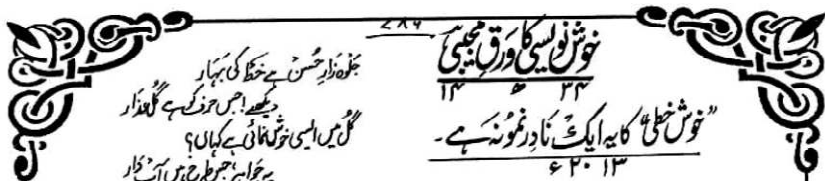 ۷۸۶
خوش نویسی کا ورقِ مجیبی
۱۴ ھ ۳۴
”خوش خطی“ کا یہ ایک نادر نمونہ ہے۔
ء ۲۰ ۱۳
جلوہ زارِ حُسن ہے خط کی بہار
دیکھے! جس حرف کو ہے گُل عذار
گُل میں ایسی خوش نمائی ہے کہاں؟
یہ جواہر جس طرح ہیں آب دار